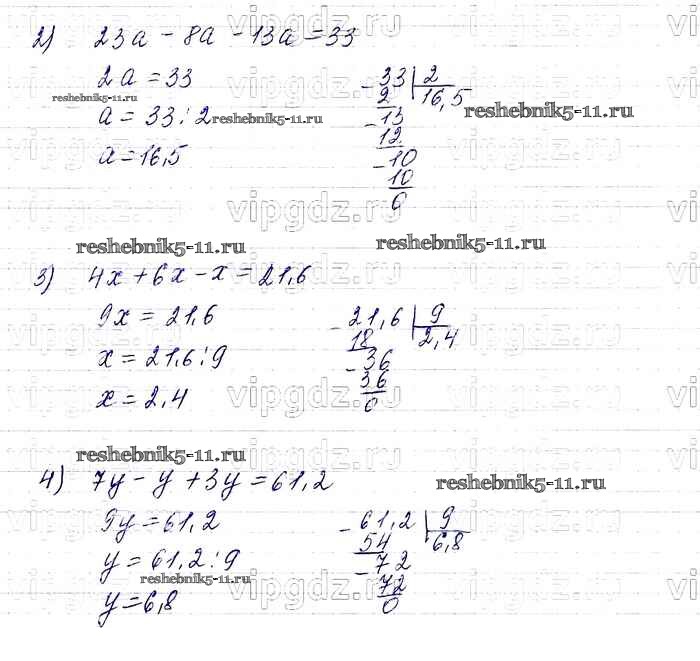 2) 23a - 8a - 13a = 33
2a = 33
a = 33 : 2
a = 16,5
- 33 | 2
2 | 16,5
- 13
12
- 10
10
0
3) 4x + 6x - x = 21,6
9x = 21,6
x = 21,6 : 9
x = 2,4
- 21,6 | 9
18 | 2,4
- 36
36
0
4) 7y - y + 3y = 61,2
9y = 61,2
y = 61,2 : 9
y = 6,8
- 61,2 | 9
54 | 6,8
- 72
72
0
reshebnik5-11.ru
reshebnik5-11.ru
reshebnik5-11.ru
reshebnik5-11.ru
reshebnik5-11.ru
reshebnik5-11.ru
reshebnik5-11.ru
reshebnik5-11.ru
vipgdz.ru